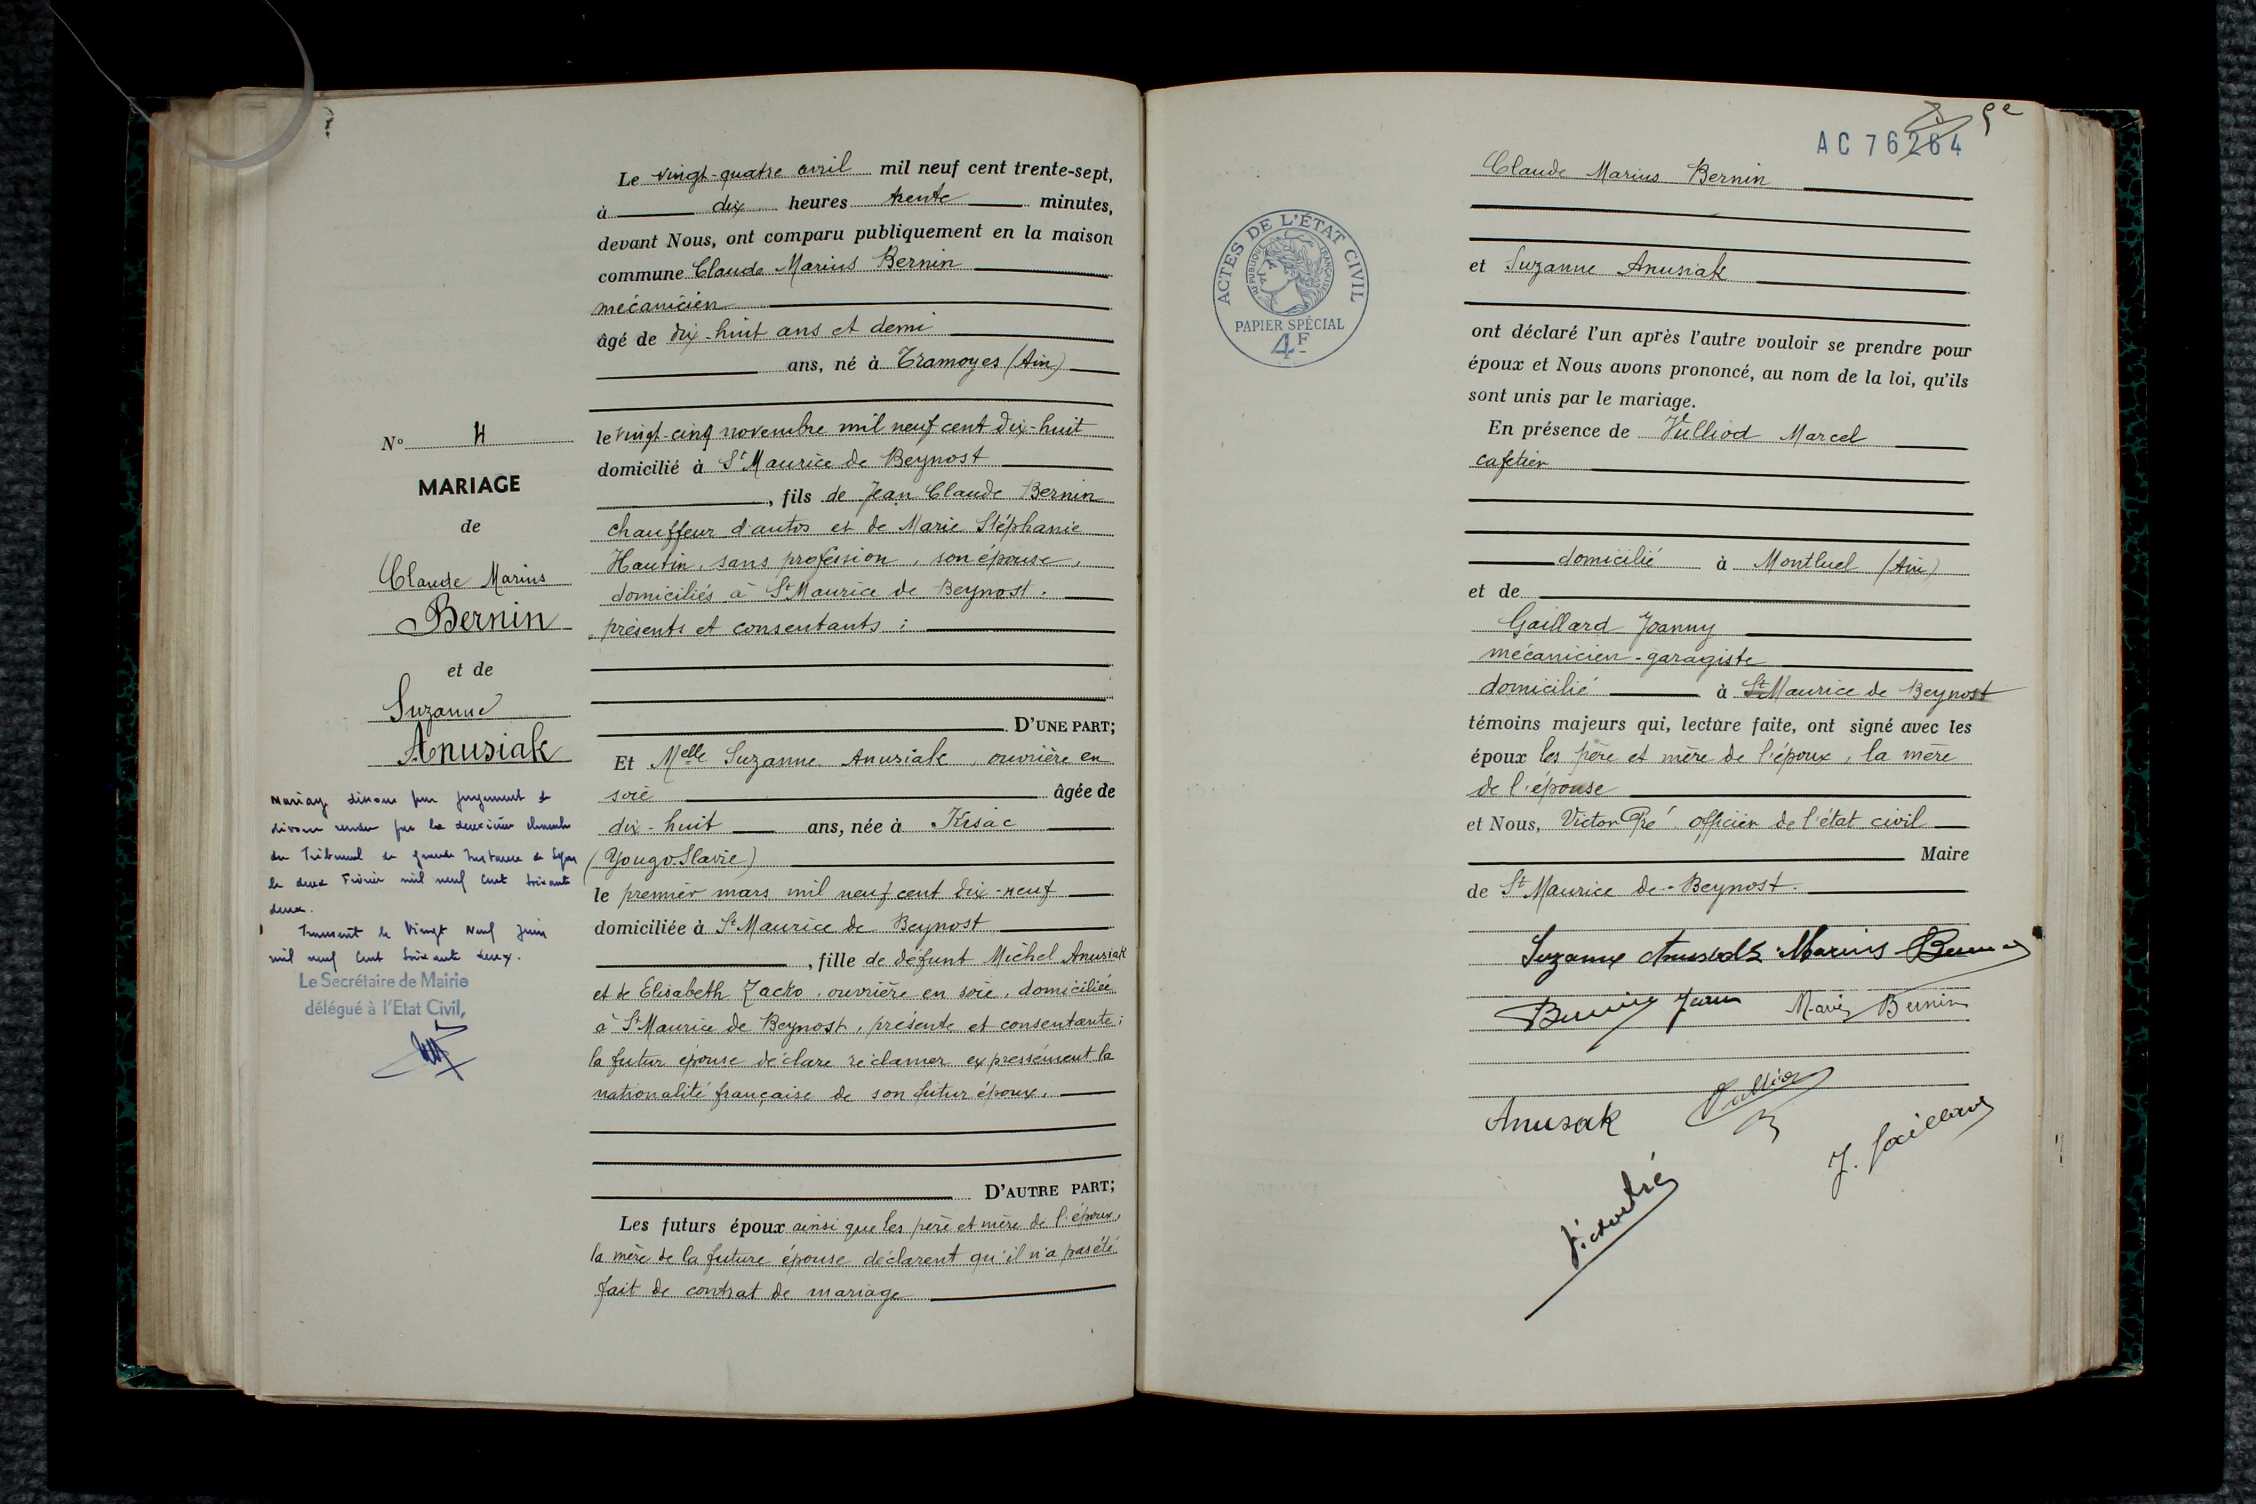 Le vingt-quatre avril mil neuf cent trente-sept,
à dix heures trente minutes,
devant Nous, ont comparu publiquement en la maison
commune Claude Marius Bernin
mécanicien
âgé de dix-huit ans et demi
ans, né à Tramoyes (Ain)
le vingt-cinq novembre mil neuf cent dix-huit
domicilié à St Maurice de Beynost
, fils de Jean Claude Bernin
chauffeur d'autos et de Marie Stéphanie
Hautin, sans profession, son épouse,
domiciliés à St Maurice de Beynost.
présents et consentants :
D'UNE PART;
Et Melle Suzanne Anusiak, ouvrière en
soie âgée de
dix-huit ans, née à Kisac
(Yougo-Slavie)
le premier mars mil neuf cent dix-neuf
domiciliée à St Maurice de Beynost
, fille de défunt Michel Anusiak
et de Elisabeth Zacko, ouvrière en soie, domiciliée
à St Maurice de Beynost, présente et consentante;
la futur épouse déclare réclamer expressément la
nationalité française de son futur époux.
D'AUTRE PART;
Les futurs époux ainsi que les père et mère de l'époux,
la mère de la future épouse déclarent qu'il n'a pas été
fait de contrat de mariage
No 4
MARIAGE
de
Claude Marius
Bernin
et de
Suzanne
Anusiak
Mariage dissous par jugement de
divorce rendu par la deuxième chambre
du Tribunal de grande Instance de Lyon
le deux Février mil neuf cent soixante
deux.
Transcrit le Vingt Neuf Juin
mil neuf cent soixante deux.
Le Secrétaire de Mairie
délégué à l'Etat Civil,
AC 76264
ACTES DE L'ÉTAT CIVIL
RÉPUBLIQUE FRANÇAISE
PAPIER SPÉCIAL
4F
Claude Marius Bernin
et Suzanne Anusiak
ont déclaré l'un après l'autre vouloir se prendre pour
époux et Nous avons prononcé, au nom de la loi, qu'ils
sont unis par le mariage.
En présence de Vulliod Marcel
cafetier
domicilié à Montluel (Ain)
et de
Gaillard Joanny
mécanicien-garagiste
domicilié à St Maurice de Beynost
témoins majeurs qui, lecture faite, ont signé avec les
époux les père et mère de l'époux, la mère
de l'épouse
et Nous, Victor Pré officier de l'état civil
Maire
de St Maurice de-Beynost.
Suzanne Anusiak Marius Bernin
Bernin Jean Marie Bernin
Anusak Vulliod
J. Gaillard
Victor Pré